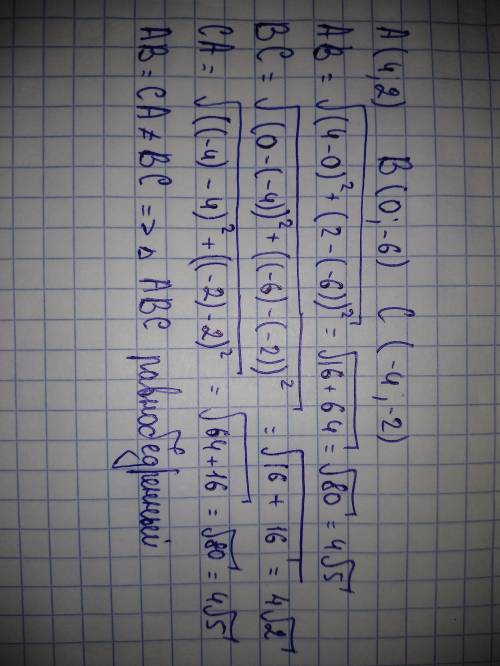 A(4;2) B(0;-6) C(-4;-2)
AB = √((4-0)² + (2-(-6))²) = √(16+64) = √80 = 4√5
BC = √((0-(-4))² + ((-6)-(-2))²) = √(16+16) = 4√2
CA = √(((-4)-4)² + ((-2)-2)²) = √(64+16) = √80 = 4√5
AB = CA ≠ BC => △ ABC равнобедренный